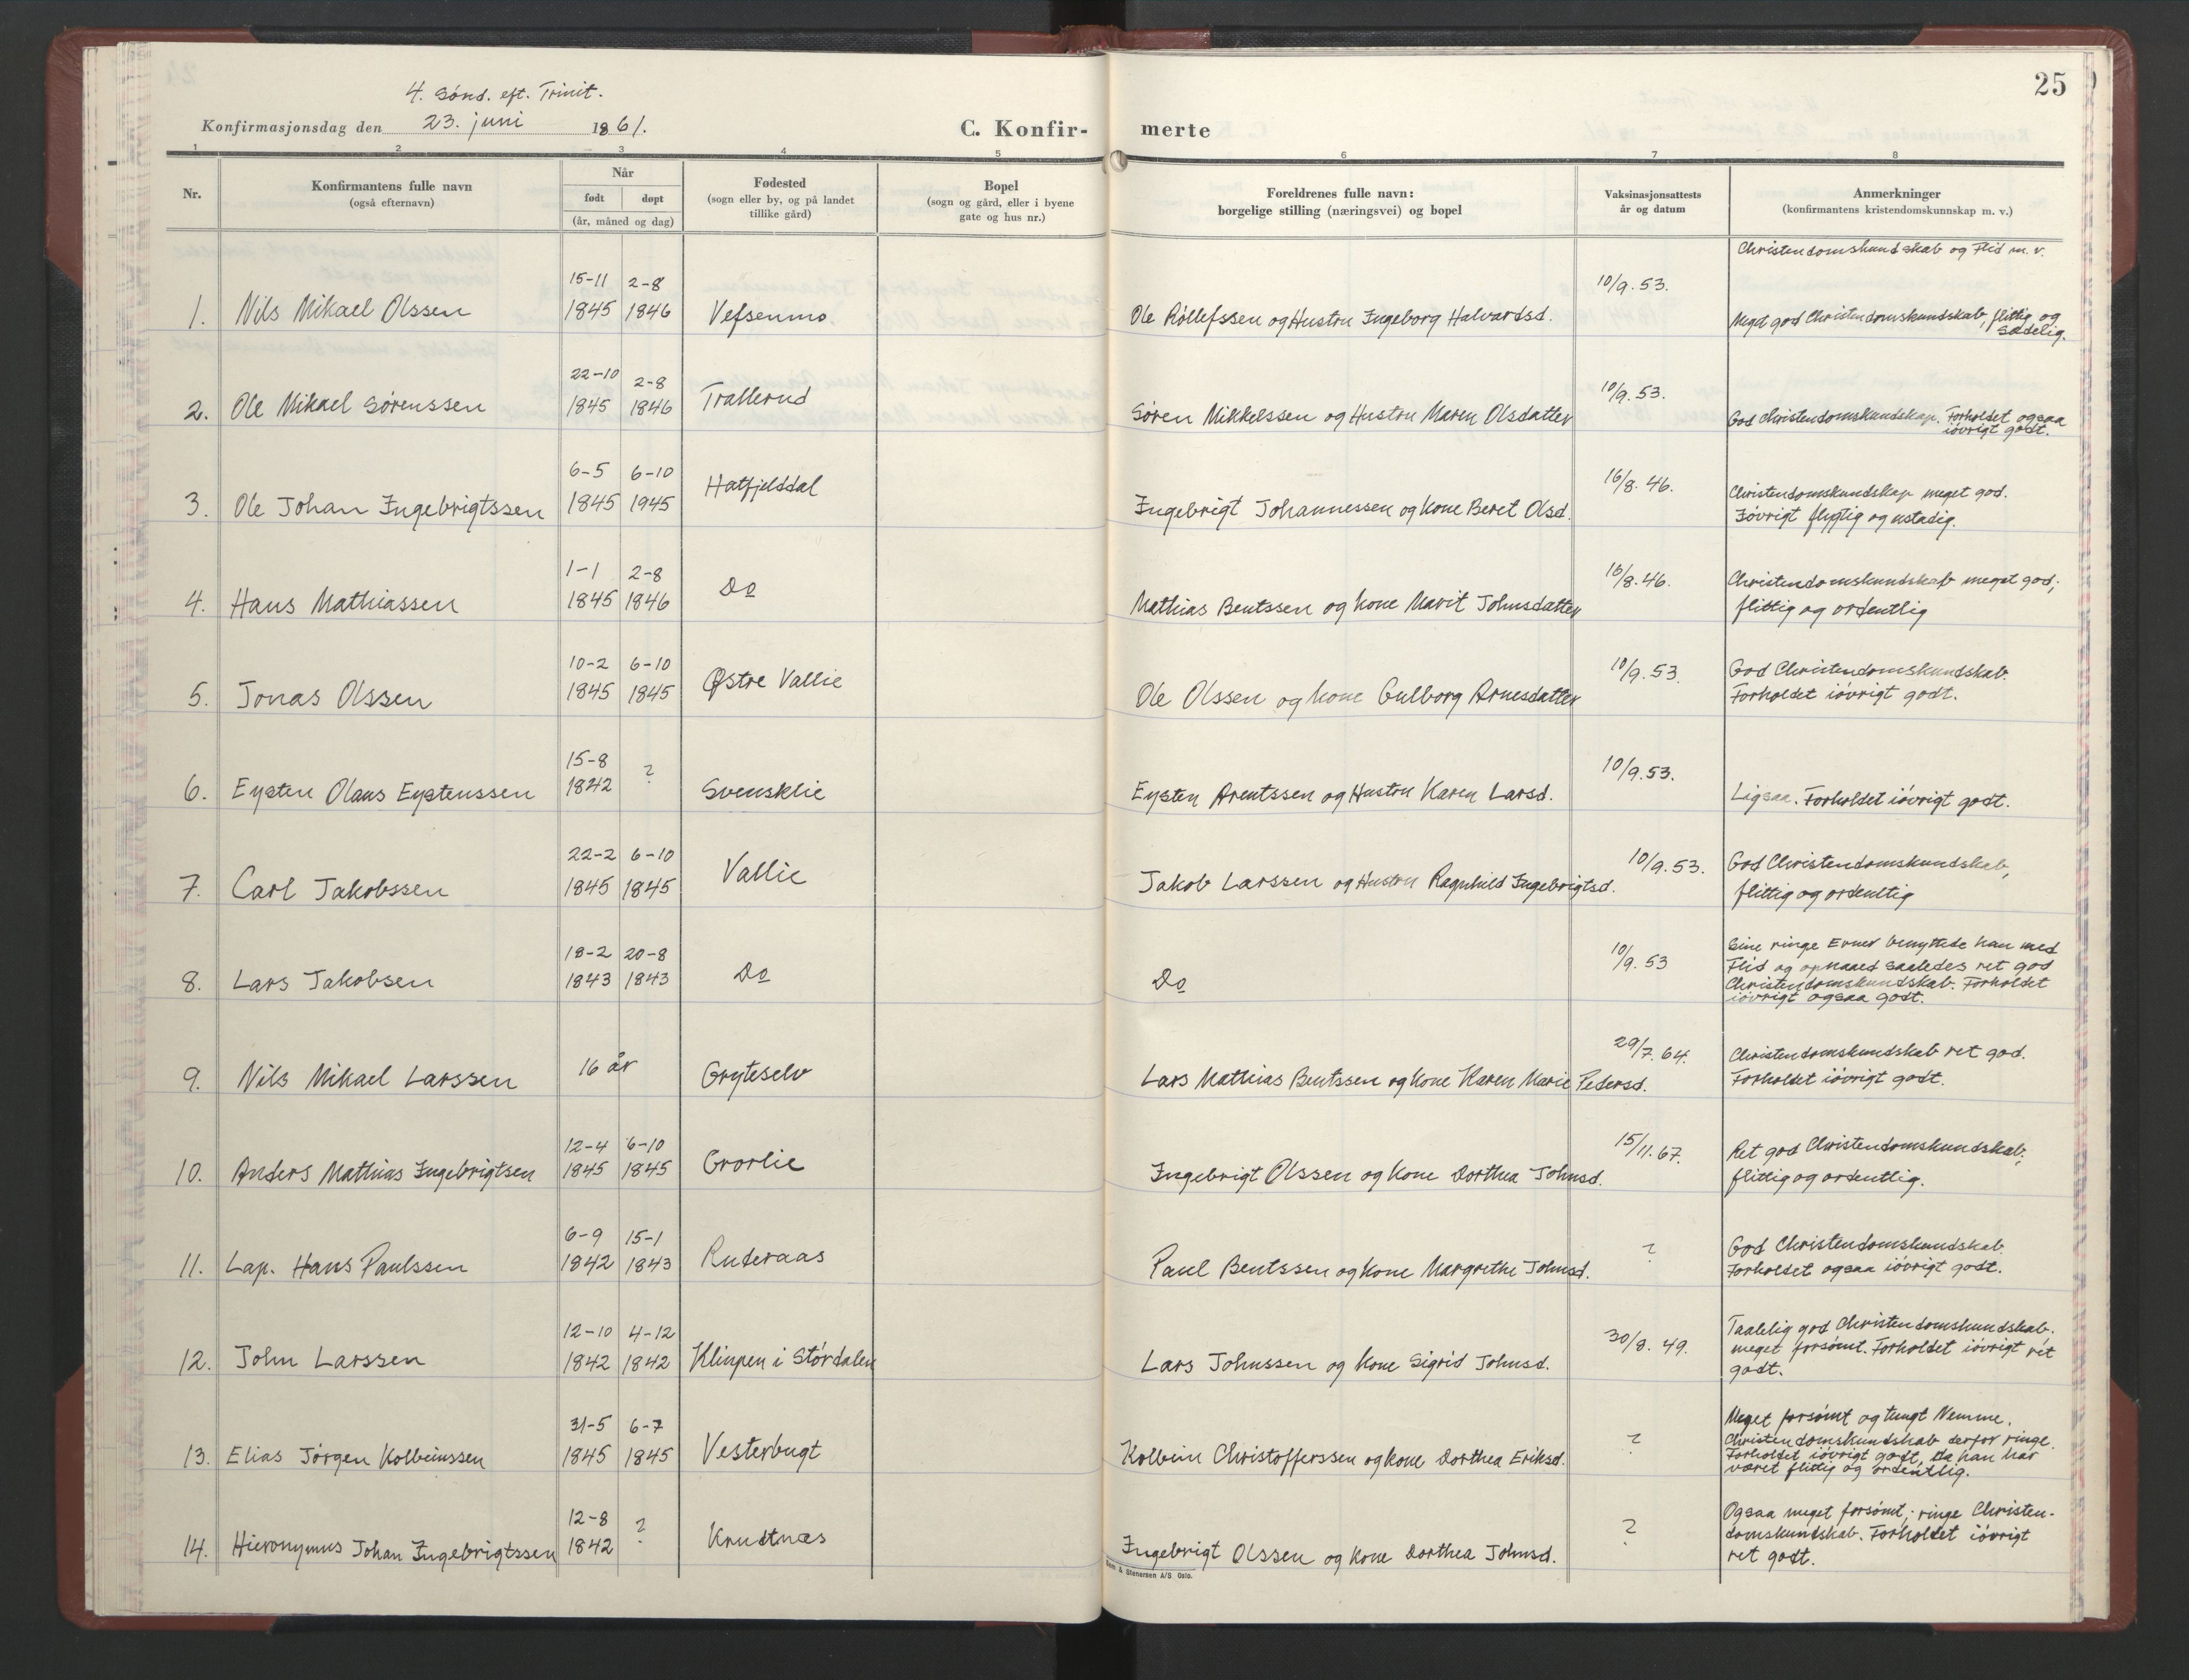 25
4. Sønd. eft. Trinit.
Konfirmasjonsdag den 23. juni 1861.
C. Konfir- merte
1 2 3 4 5 6 7 8
Nr.
Konfirmantens fulle navn
(også efternavn)
Når
født døpt
(år, måned og dag)
Fødested
(sogn eller by, og på landet
tillike gård)
Bopel
(sogn og gård, eller i byene
gate og hus nr.)
Foreldrenes fulle navn:
borgelige stilling (næringsvei) og bopel
Vaksinasjonsattests
år og datum
Anmerkninger
(konfirmantens kristendomskunnskap m. v.)
Christendomskundskab og Flid m. v.
1. Nils Mikael Olssen 15-11 1845 2-8 1846 Vefsenmo. Ole Róllefssen og Hustru Ingeborg Halvardsd. 10/9. 53. Meget god Christendomskundskab, flittig og
sædelig.
2. Ole Mikael Sórenssen 22-10 1845 2-8 1846 Trallerud Søren Mikkelssen og Hustru Maren Olsdatter 10/9. 53. God Christendomskundskap. Forholdet ogsaa
ióvrigt godt.
3. Ole Johan Ingebrigtssen 6-5 1845 6-10 1945 Hatfjelddal Ingebrigt Johannessen og Kone Beret Olsd. 16/8. 46. Christendomskundskap meget god.
Ióvrigt flygtig og ustadig.
4. Hans Mathiassen 1-1 1845 2-8 1846 Do Mathias Bentssen og Kone Marit Johnsdatter 16/8. 46. Christendomskundskab meget god;
flittig og ordentlig
5. Jonas Olssen 10-2 1845 6-10 1845 Østre Vallie Ole Olssen og Kone Gulborg Arnesdatter 10/9. 53. God Christendomskundskab.
Forholdet ióvrigt godt.
6. Eysten Olaus Eystenssen 15-8 1842 ? Svensklie Eysten Arentssen og Hustru Karen Larsd. 10/9. 53. Ligsaa. Forholdet ióvrigt godt.
7. Carl Jakobssen 22-2 1845 6-10 1845 Vallie Jakob Larssen og Hustru Ragnhild Ingebrigtsd. 10/9. 53. God Christendomskundskab,
flittig og ordentlig
8. Lars Jakobsen 18-2 1843 20-8 1843 Do Do 10/9. 53 Sine ringe Evner benyttede han med
Flid og opnaaed saaledes ret god
Christendomskundskab. Forholdet
ióvrigt ogsaa godt.
9. Nils Mikael Larssen 16 år Gryteselv Lars Mathias Bentssen og Kone Karen Marie Pedersd. 29/7. 64. Christendomskundskab ret god.
Forholdet ióvrigt godt.
10. Anders Mathias Ingebrigtsen 12-4 1845 6-10 1845 Grorlie Ingebrigt Olssen og Kone Dorthea Johnsd. 15/11. 67. Ret god Christendomskundskab;
flittig og ordentlig.
11. Lap. Hans Paulssen 6-9 1842 15-1 1843 Ruderaas Paul Bentssen og Kone Margrethe Johnsd. ? God Christendomskundskab.
Forholdet ogsaa ióvrigt godt.
12. John Larssen 12-10 1842 4-12 1842 Klinpen i Stórdalen Lars Johnssen og Kone Sigrid Johnsd. 30/8. 49. Taalelig god Christendomskundskab.
meget forsómt. Forholdet ióvrigt rét
godt.
13. Elias Jórgen Kolbeinssen 31-5 1845 6-7 1845 Vesterbugt Kolbein Christofferssen og Kone Dorthea Eriksd. ? Meget forsómt og tungt Nemme.
Christendomskundskab derfor ringe.
Forholdet ióvrigt godt, da han har
været flittig og ordentlig.
14. Hieronymus Johan Ingebrigtssen 12-8 1842 ? Knudtnæs Ingebrigt Olssen og Kone Dorthea Johnsd. ? Ogsaa meget forsómt; ringe Christen-
domskundskab. Forholdet ióvrigt
ret godt.
& Stenersen A/S Oslo.